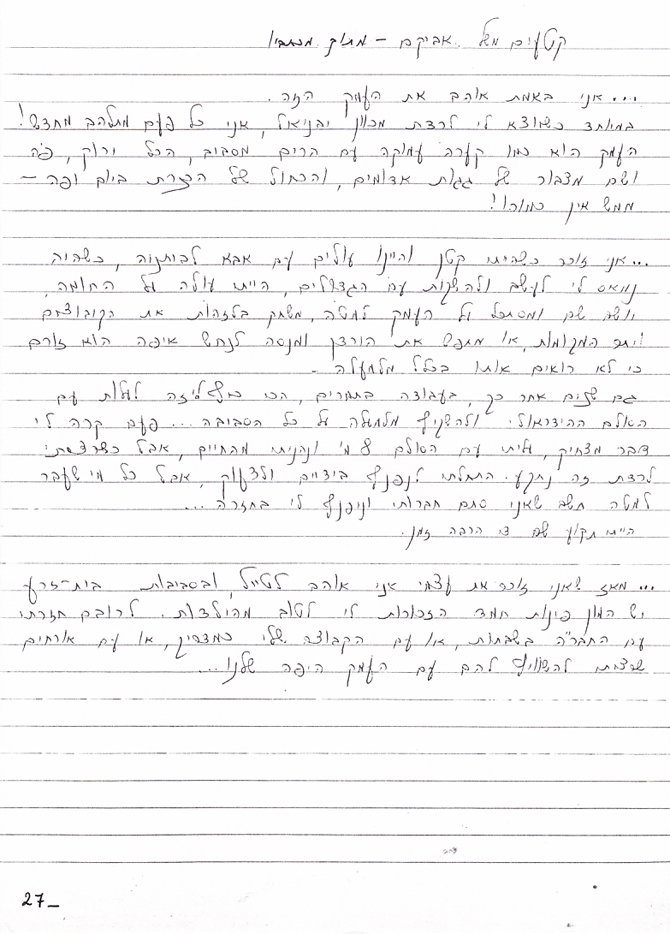 קטעים משל אביקם – מתוך מכתביו
...אני באמת אוהב את העמק הזה.
במיוחד כשיוצא לי לרדת מכוון יבניאל, אני כל פעם מתלהב מחדש!
העמק הוא כמו קערה עמוקה עם הרים מסביב, הכל ירוק, פה
ושם מצבור של גגות אדומים, והכחול של הכנרת ביום יפה –
ממש אין כמוהו!
...אני זוכר כשהייתי קטן והיינו עולים עם אבא לביתניה, כשהיה
נמאס לי לעשב ולהשקות עם הגדולים, הייתי עולה על החומה,
יושב שם ומסתכל על העמק למטה, משחק בלזהות את הקיבוצים
ויתר המקומות, או מחפש את הירדן ומנסה לנחש איפה הוא זורם
כי לא רואים אותו בכלל מלמעלה.
גם שנים אחר כך, בעבודה בתמרים, הכי כיף ליזה לעלות עם
הסולם ההידראולי ולהשקיף מלמעלה על כל הסביבה... פעם קרה לי
דבר מצחיק, עליתי עם הסולם 8 מ' ונהניתי מהחיים, אבל כשרציתי
לרדת זה נתקע. התחלתי לנפנף בידיים ולצעוק, אבל כל מי שעבר
למטה חשב שאני סתם חברותי ונופף לי בחזרה...
הייתי תקוע שם די הרבה זמן.
...מאז שאני זוכר את עצמי אני אוהב לטייל, ובסביבות בית-זרע
יש המון פינות חמד הזכורות לי לטוב מהילדות. לרובם חזרתי
עם החבר'ה בשבתות, או עם הקבוצה שלי כמדריך, או עם אורחים
שרציתי להשוויץ להם עם העמק היפה שלנו...
27_